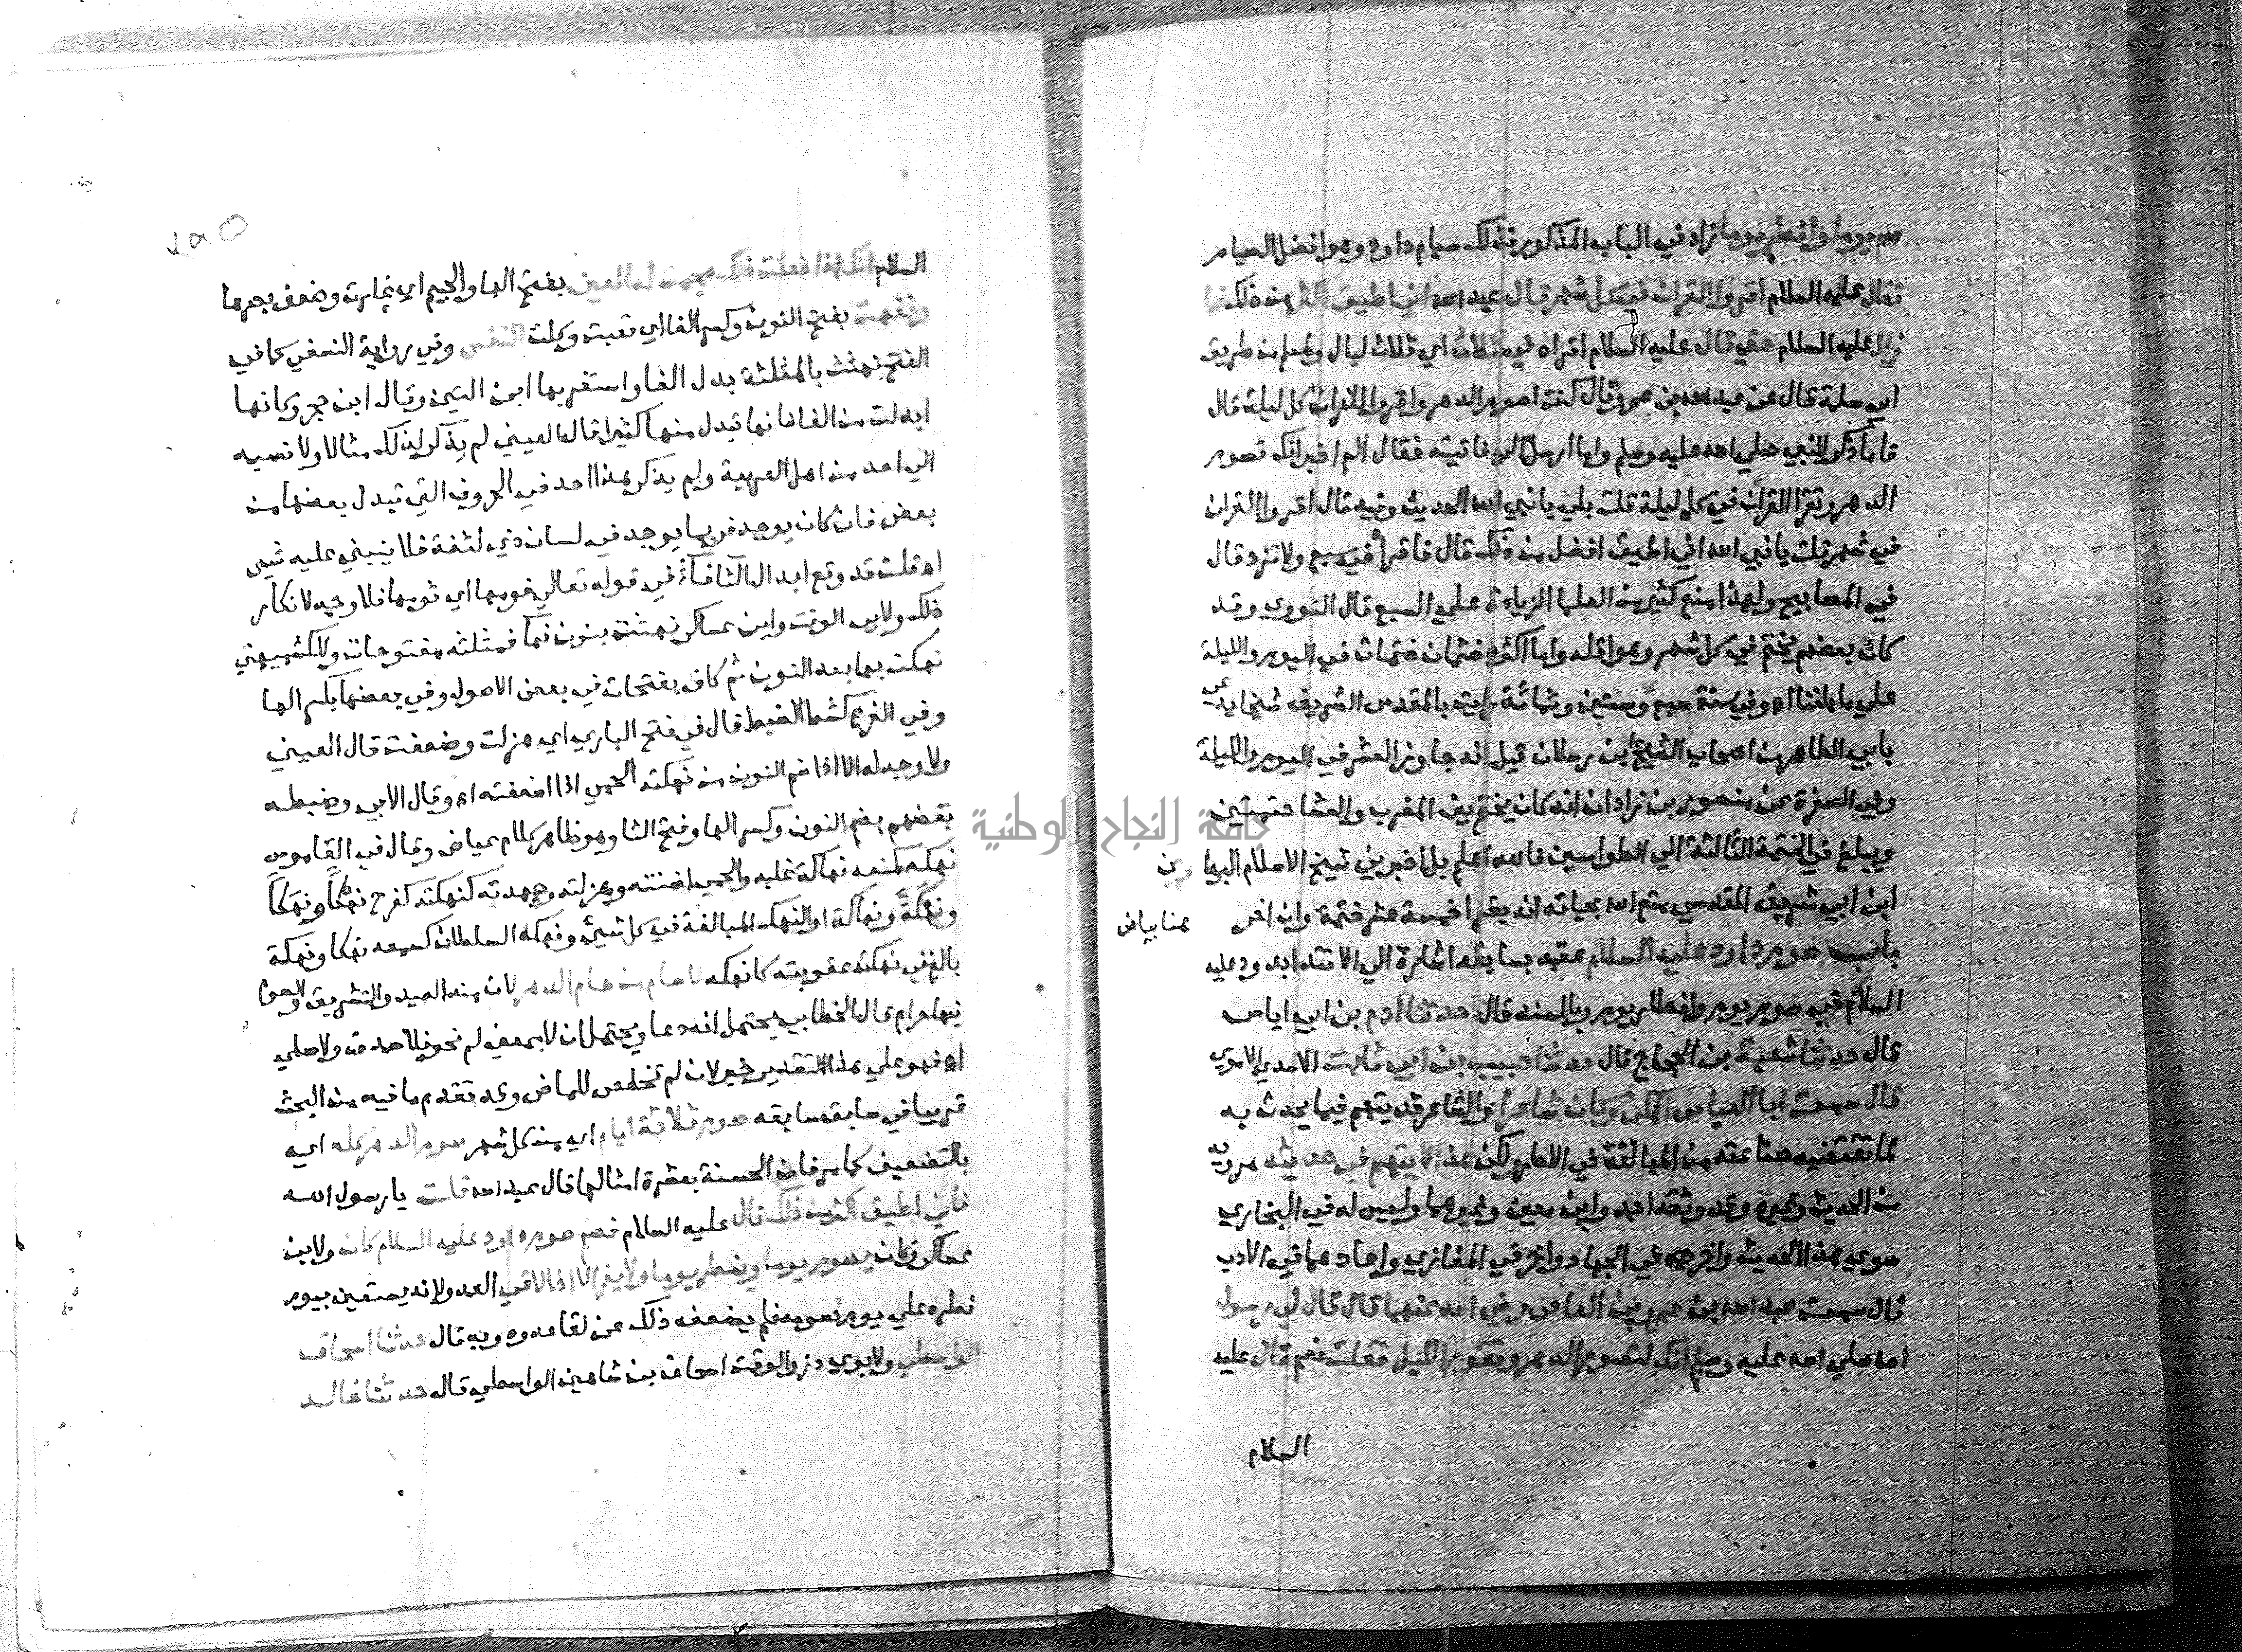 صم يوما وافطر يوما زاد في الباب المذكور فذلك صيام داود وهو افضل الصيام
فقال عليه السلام اقروا القران في كل شهر قال عبد الله اني اطيق اكثر من ذلك فما
زال عليه السلام حتى قال عليه السلام اقراه في ثلاث اي ثلاث ليال ولمسلم من طريق
ابي سلمة قال عن عبد الله بن عمرو قال كنت اصوم الدهر واقرا القران كل ليلة قال
فاما ذكر للنبي صلي الله عليه وسلم واما ارسل لي فاتيته فقال الم اخبر انك تصوم
الدهر وتقرا القران في كل ليلة قلت بلي يا نبي الله الحديث وفيه قال اقروا القران
في شهر قلت يا نبي الله اني اطيق افضل من ذلك قال فاقرا في سبع ولا تزد قال
في المصابيح ولهذا منع كثير من العلما الزيادة علي السبع قال النووي وقد
كان بعضهم يختم في كل شهر وهو اقله واما اكثره فثمان ختمات في اليوم والليلة
علي ما بلغنا اه وفي سنة سبع وستين وثمانمائة رايت بالمقدس الشريف شيخا يدعى
بابي الطاهر من اصحاب الشيخ ابن رسلان قيل انه جاوز العشر في اليوم والليلة
وفي الصفوة عن منصور بن زادان انه كان يختم بين المغرب والعشا ختمتين
ويبلغ في الختمة الثالثة الي الطواسين فالله اعلم بل اخبرني شيخ الاسلام البرهان
ابن ابي شريف المقدسي متع الله بحياته انه يقرا خمسة عشر ختمة وان اخر
هنا بياض
باب صوم داود عليه السلام عقبه بسابقه اشارة الي الاقتدا بداود عليه
السلام في صوم يوم وافطار يوم وبالسند قال حدثنا ادم بن ابي اياس
قال حدثنا شعبة بن الحجاج قال حدثنا حبيب بن ابي ثابت الاسدي الكوفي
قال سمعت ابا العباس المكي وكان شاعرا والشاعر قد يتهم فيما يحدث به
لما تقتضيه صناعته من المبالغة في الاطرا ولكن هذا لا يتهم في حديثه مرويه
من الحديث وغيره وقد وثقه احمد وابن معين وغيرهما وليس له في البخاري
سوي هذا الحديث واخر في الجهاد واخر في المغازي واعادهما في الادب
قال سمعت عبد الله بن عمرو بن العاص رضي الله عنهما قال قال لي رسول
الله صلي الله عليه وسلم انك لتصوم الدهر وتقوم الليل فقلت نعم قال عليه
السلام
السلام انك اذا فعلت ذلك هجمت له العين بفتح الها والجيم اي غارت وضعف بصرها
ونفهت بفتح النون وكسر الفا اي تعبت وكلت النفس وفي رواية النسفي كما في
الفتح نهثت بالمثلثة بدل الفا واستغربها ابن التين وقال ابن حجر وكانها
ابدلت من الفا فانها تبدل منها كثيرا قال العيني لم يذكر لذلك مثالا ولا نسبه
الي احد من اهل العربية ولم يذكر هذا احد في الحروف التي تبدل بعضها من
بعض فان كان يوجد فربما يوجد في لسان ذي لثغة فلا يبني عليه شي
اه قلت قد وقع ابدال الثا فاء في قوله تعالي فومها اي ثومها فلا وجه لانكار
ذلك ولابي الوقت وابن عساكر نهثت بنون فها فمثلثة مفتوحات وللكشميهني
نهكت بها بعد النون ثم كاف بفتحات في بعض الاصول وفي بعضها بكسر الها
وفي الفرع كشط الضبط قال في فتح الباري اي هزلت وضعفت قال العيني
ولا وجه له الا اذا ضم النون من نهكته الحمي اذا اضعفته اه وقال الابي وضبطه
بعضهم بضم النون وكسر الها وفتح التا وهو ظاهر كلام عياض وقال في القاموس
نهكه كمنعه نهاكة غلبه والحمي اضنته وهزلته وجهدته كنهكته كفرح نهكا ونهكا
ونهكة ونهاكة او النهك المبالغة في كل شيئ ونهكه السلطان كسمعه نهكا ونهكة
بالغ في نهكته عقوبته كانهكه لا صام من صام الدهر لان منه العيد والتشريق والصوم
فيها حرام قال الخطابي يحتمل انه دعا ويحتمل ان لا بمعني لم نحو فلا صدق ولا صلي
اه فهو علي هذا التقدير خبر لان لم تخلص للماضي وقد تقدم ما فيه من البحث
قريبا في سابق سابقه صوم ثلاثة ايام اي من كل شهر صوم الدهر كله اي
بالتضعيف كما مر فان الحسنة بعشرة امثالها قال عبد الله قلت يا رسول الله
فاني اطيق اكثر من ذلك قال عليه السلام فصم صوم داود عليه السلام كان ولابن
عساكر وكان يصوم يوما ويفطر يوما ولا يفر اذا لاقي العدو لانه يستعين بيوم
فطره علي يوم صومه فلم يضعفه ذلك عن لقا عدوه وبه قال حدثنا اسحاق
الواسطي ولابوي ذر والوقت اسحاق بن شاهين الواسطي قال حدثنا خالد
جامعة النجاح الوطنية